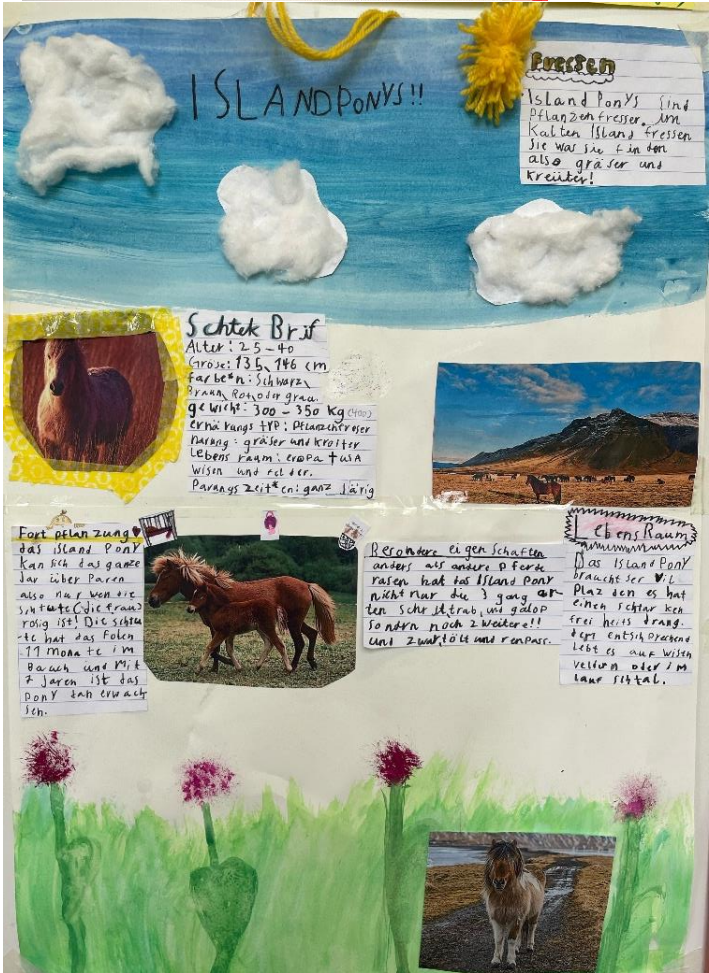 ISLANDPONYS!!
Fressen
Island Ponys sind
Pflanzenfresser. im
Kalten Island fressen
Sie was sie finden
also gräser und
kreüter!
Schtek Brif
Alter: 25-40
Gröse: 135, 146 cm
farbe*n: Schwarz,
Braun, Rot, oder grau.
gewicht: 300-350 Kg (400)
ernärungs tYP: Pflanzenfreser
narung: gräser und kroiter
Lebens raum: eroPa + USA
wisen und felder.
Parangs Zeit*en: ganz Järig
Fort pflanzung
das island Pony
kan sich das ganze
Jar über Paren
also nur wen die
schtute (die frau)
rosig ist! Die schtu
-te hat das folen
11 monate im
Bauch und Mit
7 jaren ist das
Pony dan erwach
sen.
Besondere eigenschaften
anders als andere Pferde
rasen hat das Island Pony
nicht nur die 3 gang ar
ten schrit, trab, und galop
sondern noch 2 weitere!!
und zwar, tölt und renpass.
LebensRaum
Das Island Pony
braucht ser vil
Plaz den es hat
einen schtar ken
frei heits drang.
dem entsch Prechend
lebt es auf wisen
veldern oder im
lauf schtal.